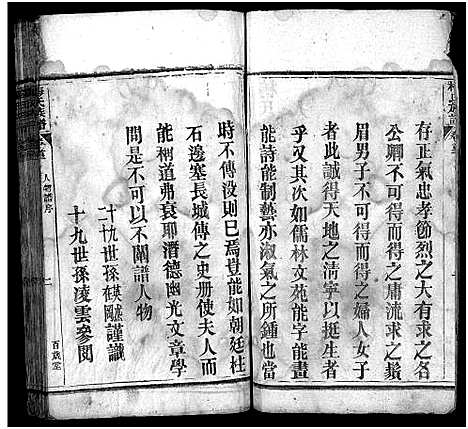 存正氣忠孝節烈之大有求之名
公卿不可得而得之庸流求之鬚
眉男子不可得而得之婦人女子
者此誠得天地之清寧以挺生者
乎又其次如儒林文苑能字能畫
能詩能制藝亦淑氣之所鍾也當
時不傳沒則已焉豈能如朝廷柱
石邊塞長城傳之史册使夫人而
能稱道弗衰耶潛德幽光文章學
問是不可以不闡譜人物
二十九世孫 謹識
十九世孫淩雲參閱
人物譜序
百歲堂